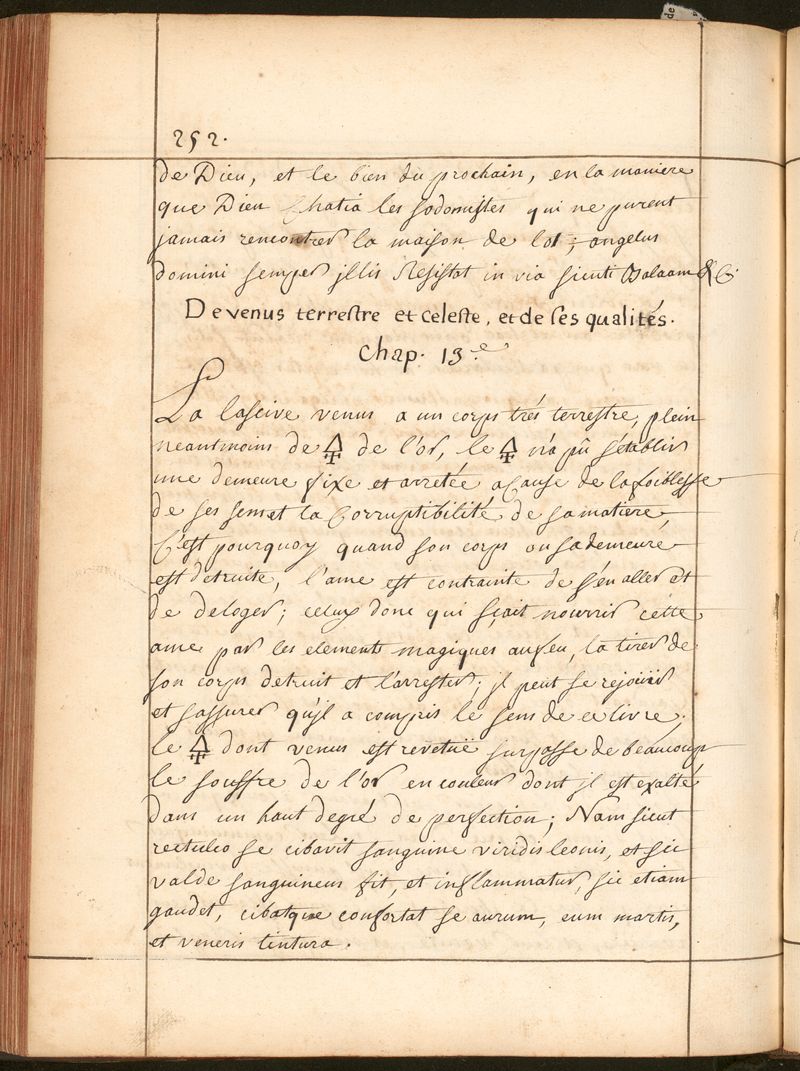 252.
de Dieu, et le bien du prochain, en la maniere
que Dieu Chatia les sodomistes qui ne purent
jamais rencontrer la maison de lot; angelus
domini semper jllis Resistat in via sicuti Balaam &c.
De venus terrestre et celeste, et de ses qualités.
Chap. 13.e
La lascive venus a un corps trés terrestre, plein
neantmoins de 🜍 de l'or, le 🜍 n'a pû s'établir
une demeure fixe et arretée a Cause de la foiblesse
de ses sens et la Corruptibilité de sa matiere,
C'est pourquoy quand son corps ou sa demeure
est detruite, l'ame est contrainte de s'en aller et
de deloger; celuy donc qui sçait nourrir cette
ame par les elements magiques au feu, la tirer de
son corps detruit et l'arrester; jl peut se rejoüir
et s'assurer qu'jl a compris le sens de ce livre;
le 🜍 dont venus est revetuë surpasse de beaucoup
le souffre de l'or en couleur dont jl est exalté
dans un haut degré de perfection; Nam sicut
se cibavit sanguine viridis leonis, et sic
valde sanguineus fit, et inflammatur, sic etiam
gaudet, cibatque confortat se aurum, cum martis,
et veneris tintura.